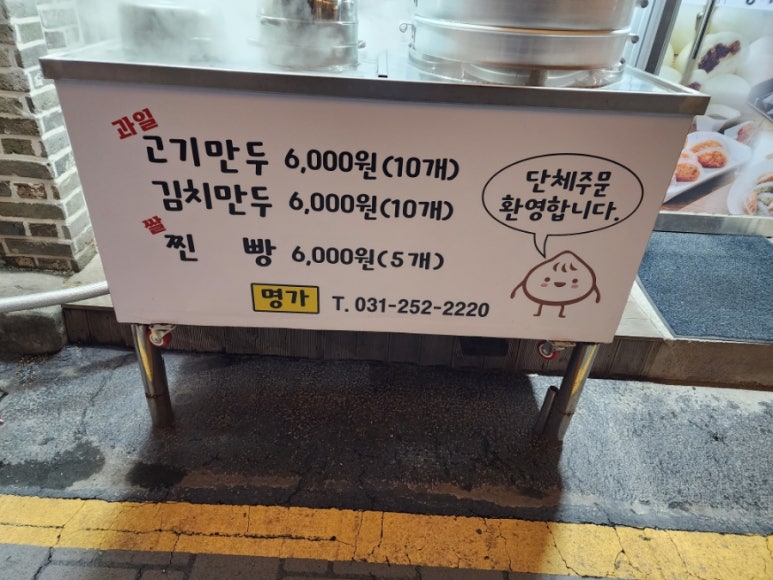 과일
고기만두 6,000원(10개)
김치만두 6,000원(10개)
쌀
찐 빵 6,000원(5개)
명가 T. 031-252-2220
단체주문
환영합니다.